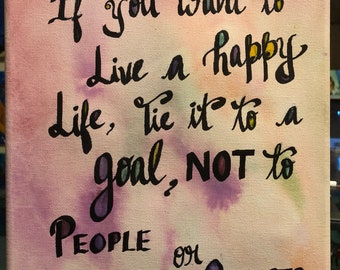 If you want to
Live a happy
Life, Tie it to a
goal, NOT to
PEOPLE or